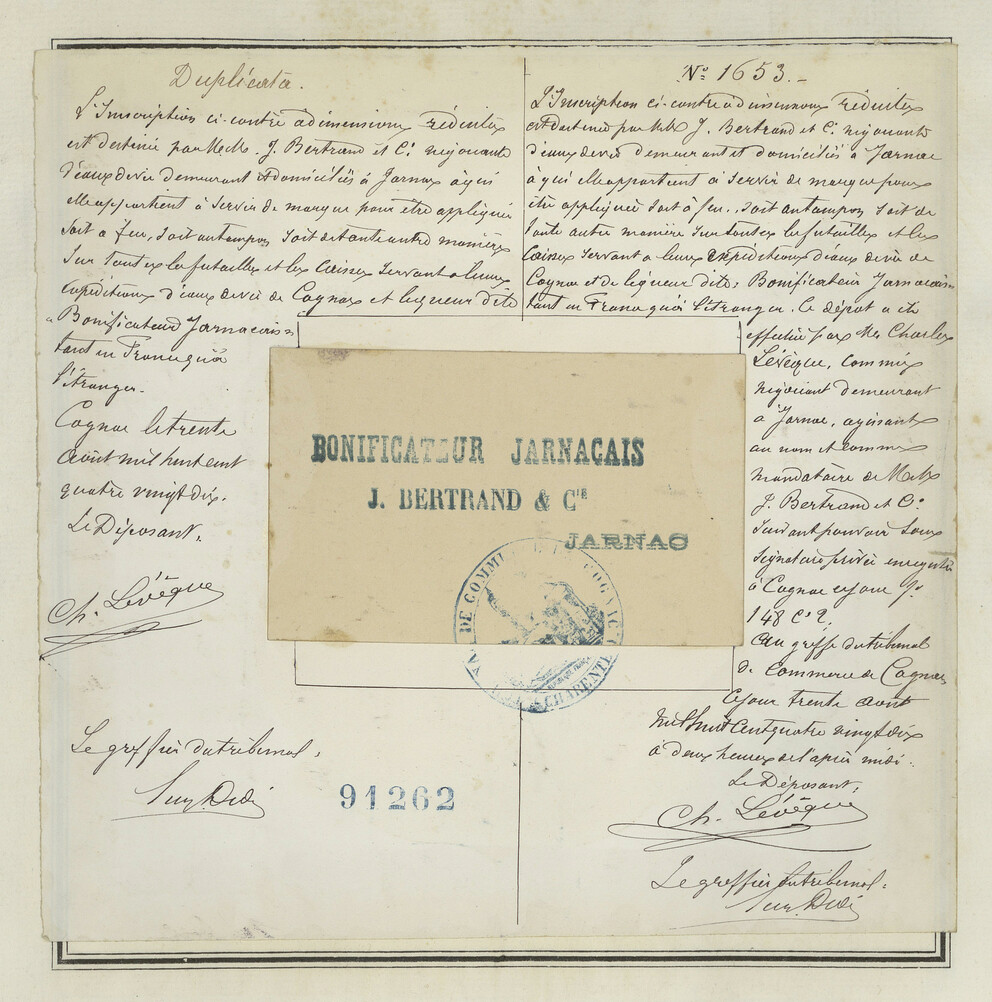 Duplicata.
L'Inscription ci-contre à dimensions réduites
est destinée par MM. J. Bertrand et Cie négociants
d'eaux de vie demeurant et domiciliés à Jarnac à qui
elle appartient à servir de marque pour être appliquée
soit à feu, soit au tampon soit de toute autre manière
sur toutes les futailles et les caisses servant à leurs
expéditions d'eaux de vie de Cognac et liqueur dite
"Bonificateur Jarnacais"
tant en France qu'à
l'étranger.
Cognac le trente
août mil huit cent
quatre vingt dix.
Le Déposant,
Ch. Lévêque
Le greffier du tribunal,
No 1653.-
L'Inscription ci-contre à dimensions réduites
est destinée par MM. J. Bertrand et Cie négociants
d'eaux de vie demeurant et domiciliés à Jarnac
à qui elle appartient à servir de marque pour
être appliquée soit à feu, soit au tampon soit de
toute autre manière sur toutes les futailles et les
caisses servant à leurs expéditions d'eaux de vie de
Cognac et de liqueur dite: Bonificateur Jarnacais
tant en France qu'à l'étranger. Le dépôt a été
effectué par Mr Charles
Lévêque, commis
négociant demeurant
à Jarnac, agissant
au nom et comme
mandataire de MM.
J. Bertrand et Cie
suivant pouvoir sous
signature privée enregistré
à Cognac ce jour fo
148 Ce 2.
au greffe du tribunal
de Commerce de Cognac
ce jour trente août
mil huit cent quatre vingt dix
à deux heures de l'après midi.
Le Déposant,
Ch. Lévêque
Le greffier du tribunal:
BONIFICATEUR JARNACAIS
J. BERTRAND & CIE
JARNAC
DE COMM COGNAC
CHARENTE
91262